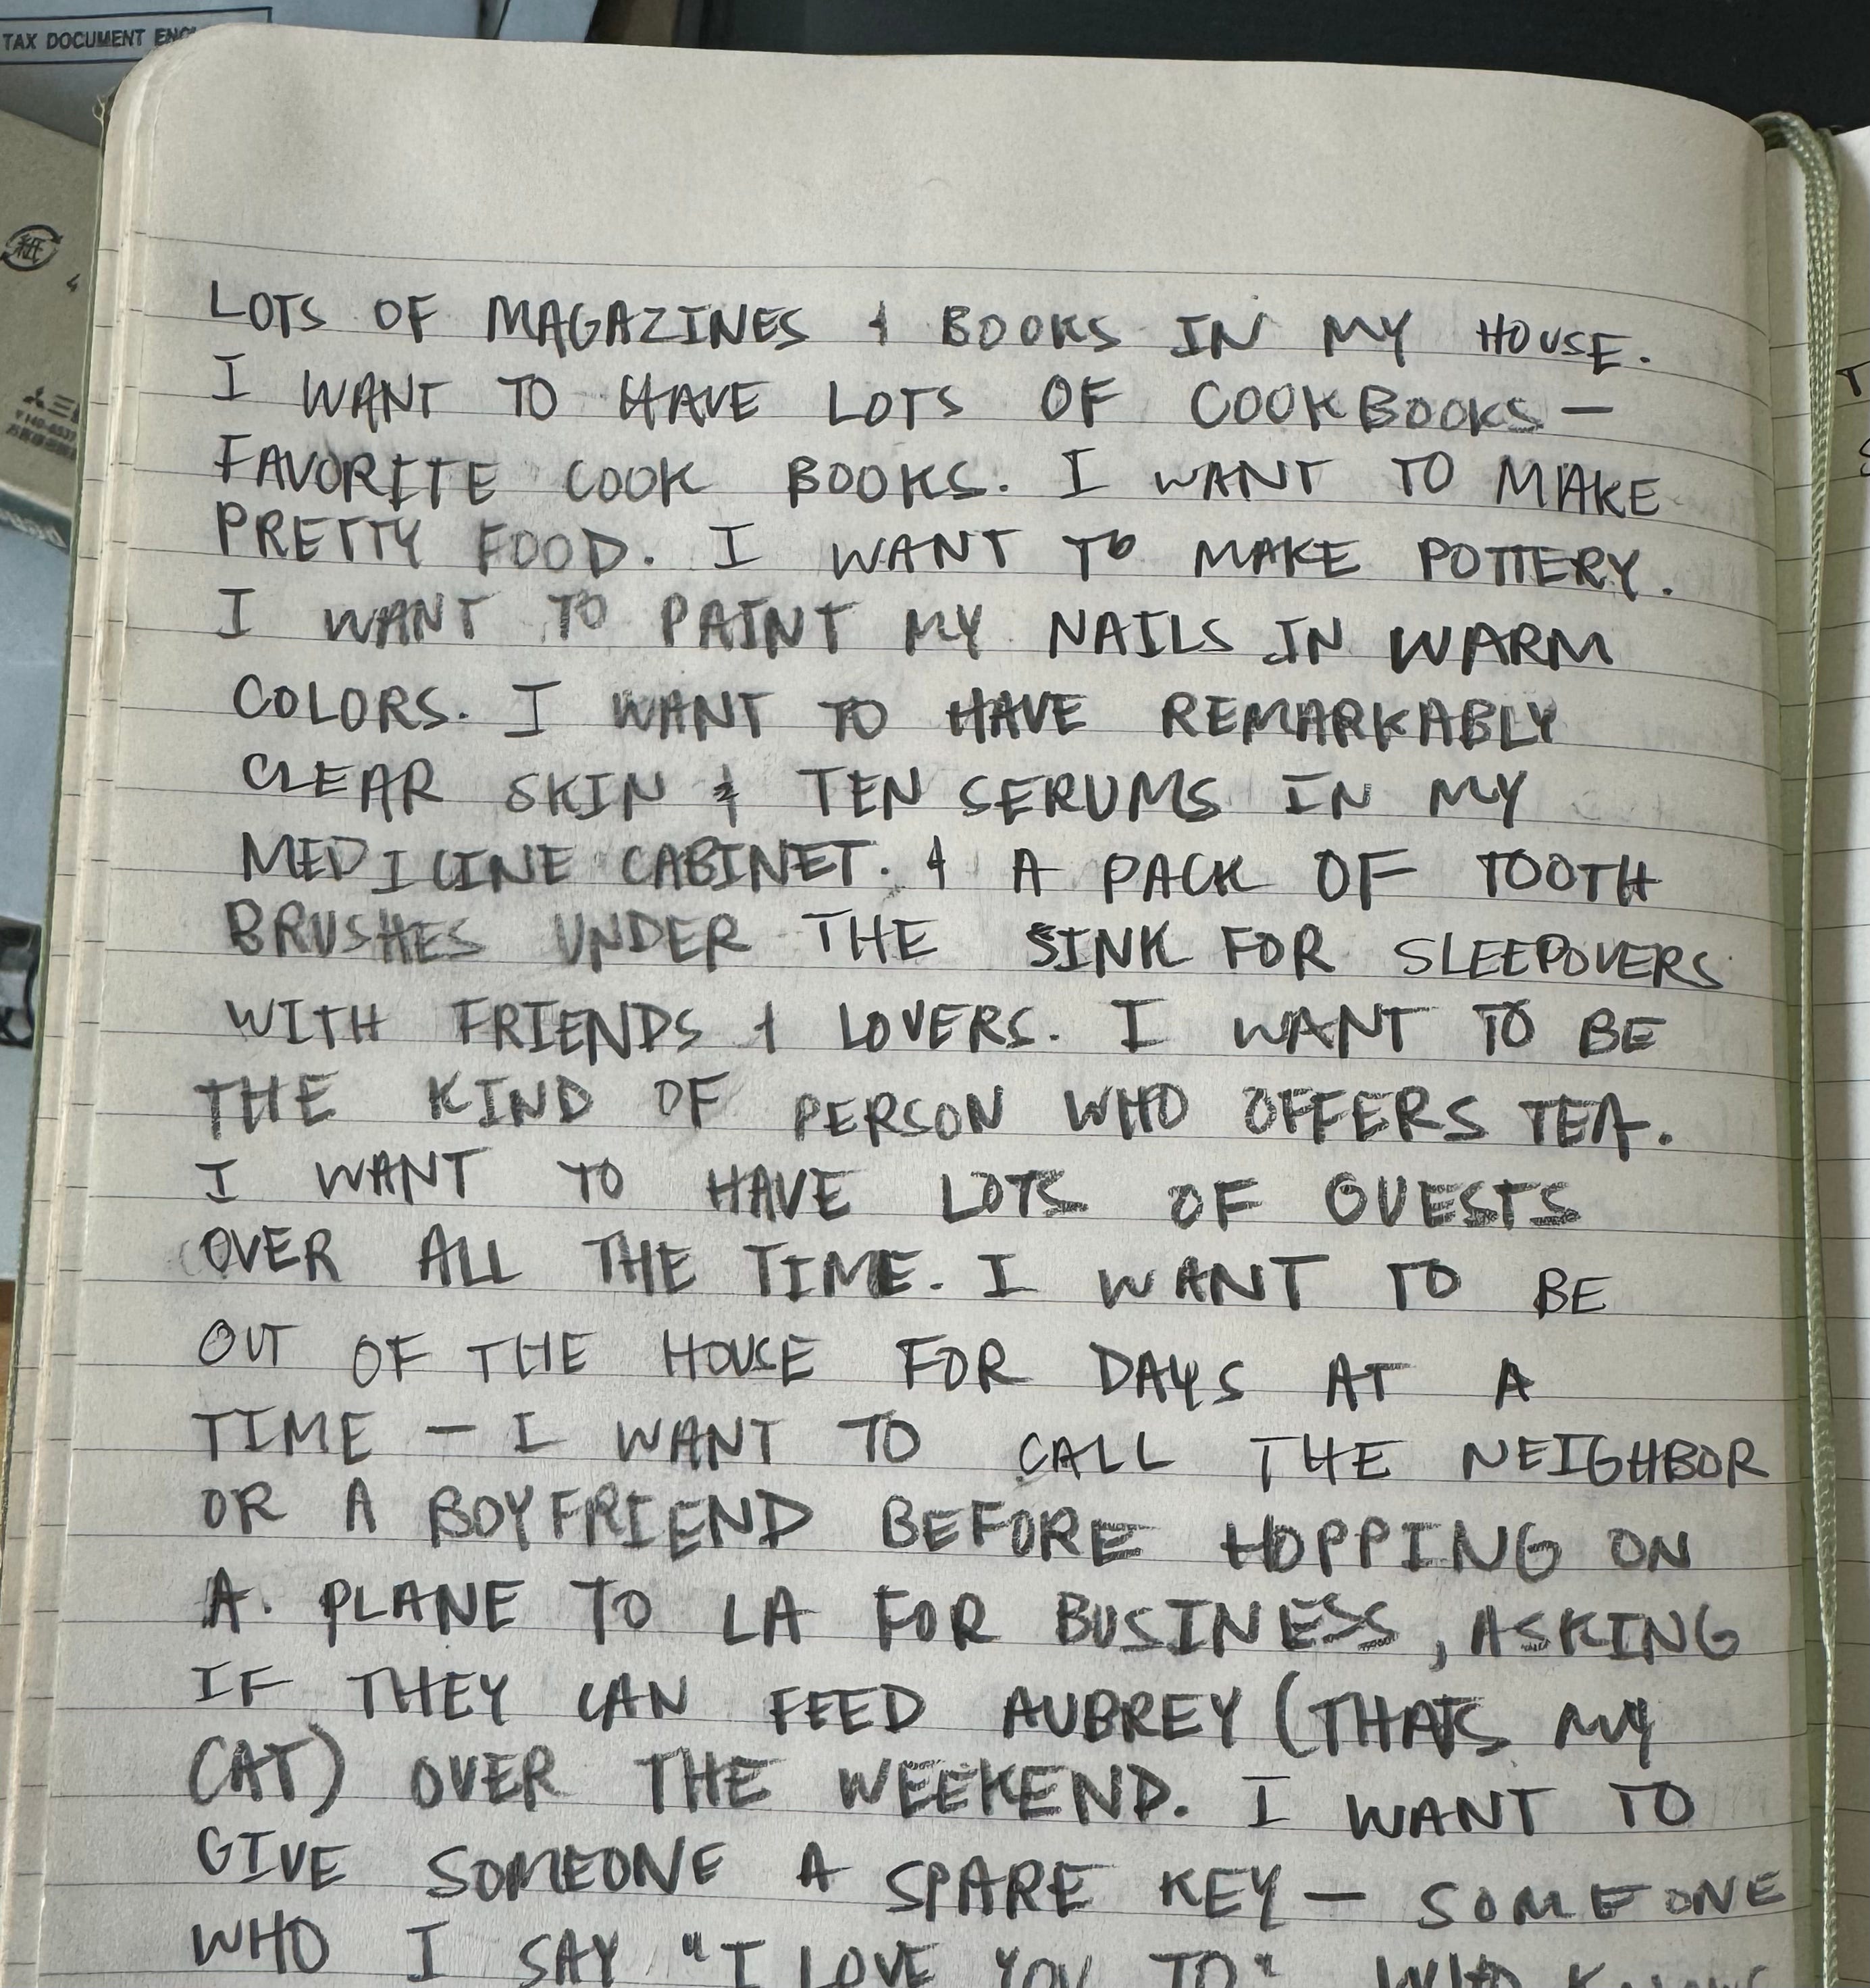 TAX DOCUMENT
紙
LOTS OF MAGAZINES & BOOKS IN MY HOUSE.
I WANT TO HAVE LOTS OF COOKBOOKS —
FAVORITE COOK BOOKS. I WANT TO MAKE
PRETTY FOOD. I WANT TO MAKE POTTERY.
I WANT TO PAINT MY NAILS IN WARM
COLORS. I WANT TO HAVE REMARKABLY
CLEAR SKIN & TEN SERUMS IN MY
MEDICINE CABINET. & A PACK OF TOOTH
BRUSHES UNDER THE SINK FOR SLEEPOVERS
WITH FRIENDS & LOVERS. I WANT TO BE
THE KIND OF PERSON WHO OFFERS TEA.
I WANT TO HAVE LOTS OF GUESTS
OVER ALL THE TIME. I WANT TO BE
OUT OF THE HOUSE FOR DAYS AT A
TIME — I WANT TO CALL THE NEIGHBOR
OR A BOYFRIEND BEFORE HOPPING ON
A. PLANE TO LA FOR BUSINESS, ASKING
IF THEY CAN FEED AUBREY (THATS MY
CAT) OVER THE WEEKEND. I WANT TO
GIVE SOMEONE A SPARE KEY — SOMEONE
WHO I SAY "I LOVE YOU TO" WHO